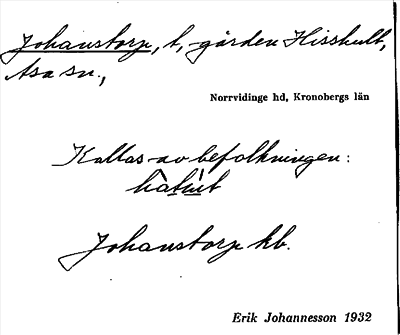 Johanstorp, t, gården Hisshult,
Asa sn.,
Norrvidinge hd, Kronobergs län
Kallas av befolkningen:
Johanstorp kb.
Erik Johannesson 1932